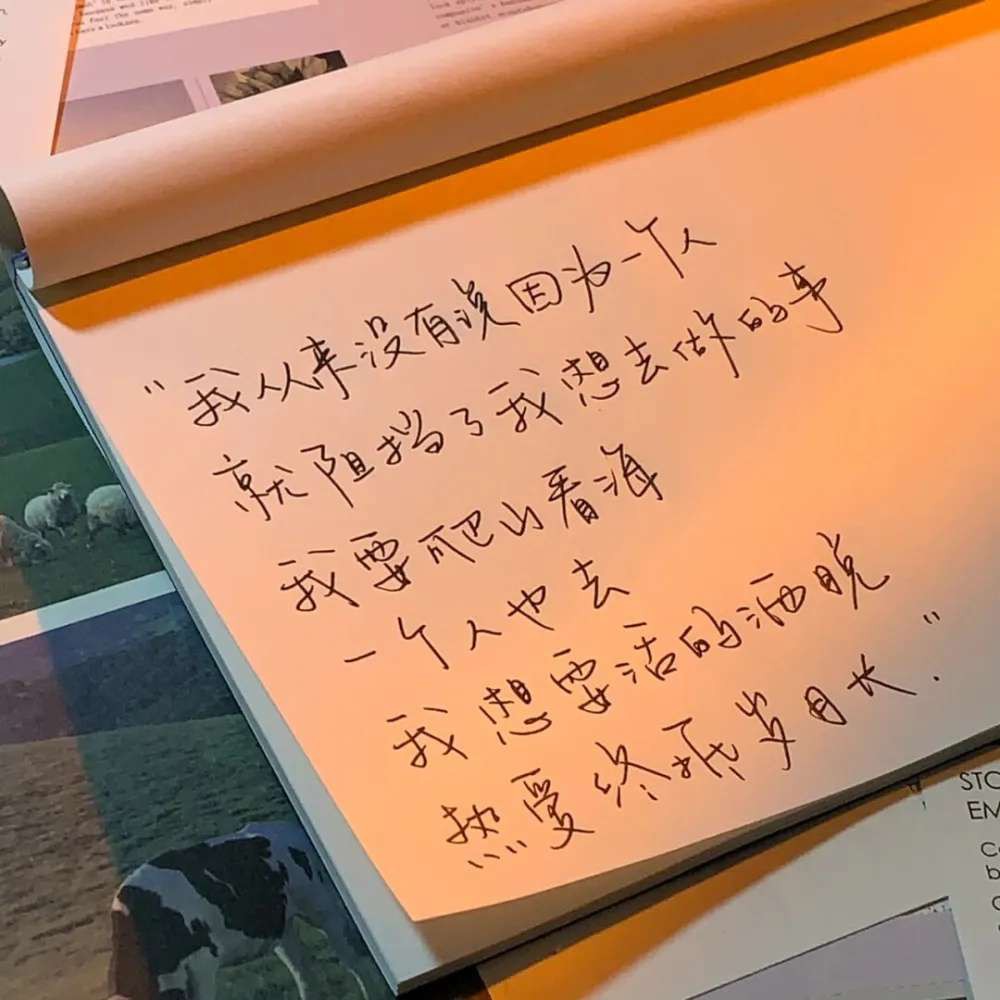 “我从来没有说因为一个人
就阻挡了我想去做的事
我要爬山看海
一个人也去
我想要活的洒脱
热爱终抵岁月长.”
STO
EM